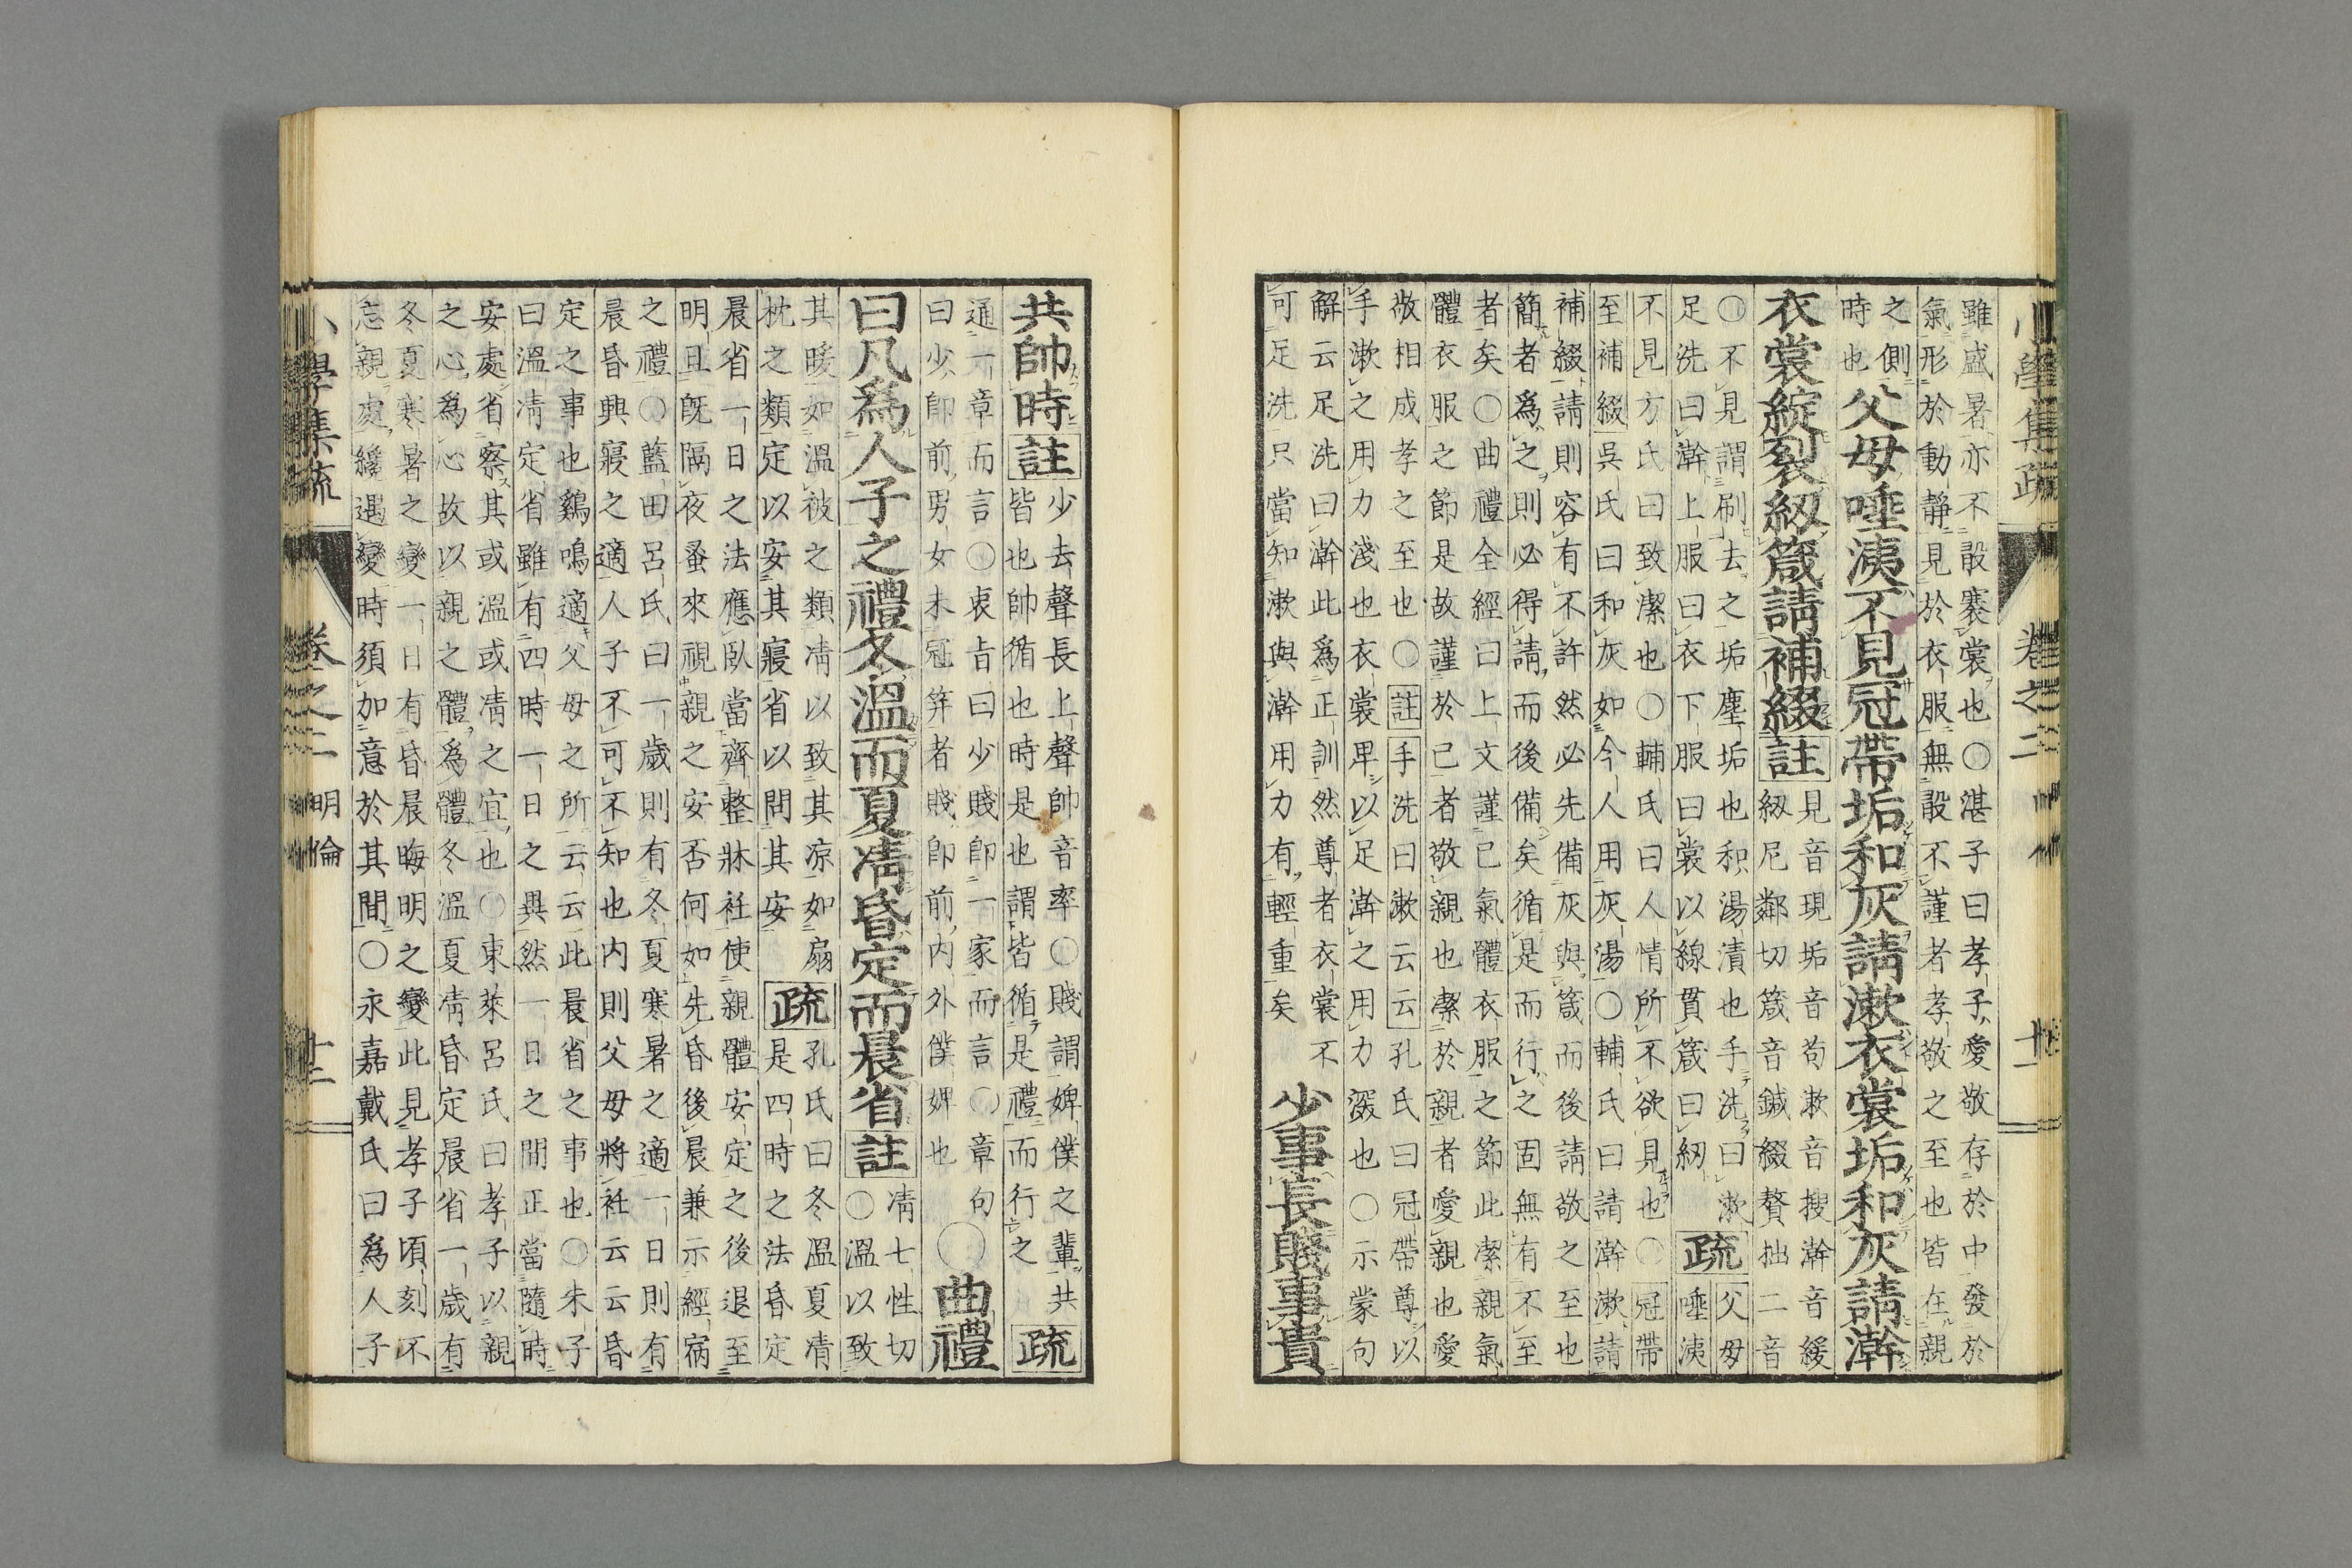 小學集疏 卷之二 十二
雖盛暑亦不㪍褰裳也○湛子曰孝子愛敬存於中發於
氣形於動靜見於衣服無㪍不謹者孝敬之至也皆在親
之側
時也父母唾洟不見冠帶垢和灰請漱衣裳垢和灰請澣
衣裳綻裂紉箴請補綴註見音現垢音苟漱音搜澣音緩
紉尼鄰切箴音鍼綴贅拙二音
○不見謂刷去之垢塵垢也和湯漬也手洗曰漱
足洗曰澣上服曰衣下服曰裳以線貫箴曰紉疏父母
唾洟
不見方氏曰致潔也○輔氏曰人情所不欲見也○冠帶
至補綴吳氏曰和灰如今人用灰湯○輔氏曰請澣漱請
補綴請則容有不許然必先備灰與箴而後請敬之至也
簡者爲之則必得請而後備矣循是而行之固無有不至
者矣○曲禮全經曰上文謹己氣體衣服之節此潔親氣
體衣服之節是故謹於己者敬親也潔於親者愛親也愛
敬相成孝之至也○註手洗曰漱云云孔氏曰冠帶尊以
手漱之用力淺也衣裳卑以足澣之用力深也○示蒙句
解云足洗曰澣此爲正訓然尊者衣裳不
可足洗只當知漱與澣用力有輕重矣少事長賤事貴
共帥時註少去聲長上聲帥音率○賤謂婢僕之輩共
皆也帥循也時是也謂皆循是禮而行之疏
通一章而言○衷旨曰少賤卽一家而言○章句
曰少卽前男女未冠笄者賤卽前內外僕婢也○曲禮
曰凡爲人子之禮冬溫而夏凊昏定而晨省註凊七性切
○溫以致
其暖如溫被之類凊以致其凉如扇
枕之類定以安其寢省以問其安疏孔氏曰冬溫夏凊
是四時之法昏定
晨省一日之法應臥當齊整牀衽使親體安定之後退至
明旦旣隔夜蚤來視親之安否何如先昏後晨兼示經宿
之禮○藍田呂氏曰一歲則有冬夏寒暑之適一日則有
晨昏興寢之適人子不可不知也内則父母將衽云云昏
定之事也鷄鳴適父母之所云云此晨省之事也○朱子
曰溫凊定省雖有四時一日之異然一日之間正當隨時
安處省察其或溫或凊之宜也○東萊呂氏曰孝子以親
之心爲心故以親之體爲體冬溫夏凊昏定晨省一歲有
冬夏寒暑之變一日有昏晨晦明之變此見孝子頃刻不
忘親處纔遇變時須加意於其間○永嘉戴氏曰爲人子
小學集疏 卷之二 明倫 十三